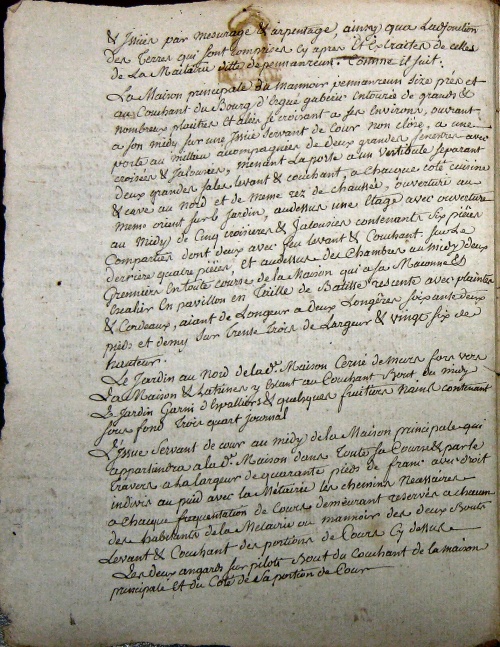 & Issües par mesurage & arpentage, ainsy qu'a Ladjonction
des Terres qui sont comprises Cy apres et Extraites de celles
de La Maitairie ditte de penmanreun Comme il suit.
La Maison principale du manoir penmanreun size pres et
au Couchant du Bourg d'ergue gaberic Entourée de grands &
nombreux placitres et alées se croisant a ses Environs, ouvrant
a son midy sur une Issüe servant de Cour non close, a une
porte au millieu acompagniées de Deux grandes fenetres avec
croisées & Jalousies, menant La porte a un vertibule separant
Deux grandes sales levant & couchant, a chaque côté cuisine
& cave au Nord et de meme rez de chaussée, ouverture au
meme orient sur le Jardin, audessus une Etage avec ouverture
au midy de Cinq croisieres & Jalousies contenant Six pieces
Comparties dont deux avec feu levant & Couchant, sur Le
derriere quatre pieces, et audessus des Chambres au midy deux
Grenniers En toute course de la Maison qui a sa Maçonne &
Escalier En pavillon en Taille de Batisse resente avec plaintes
& Cordeaux, aiant de Longeur a deux Longeres soixante deux
pieds et demy sur Trente Trois de Largeur & vingt six de
hauteur.
Le Jardin au Nord de lad.e Maison Cerné de murs fors vers
La Maison & Latrines y Etant au Couchant Bout du midy
Le Jardin Garni d'Espalliers & quelques fruitiers Nains contenant
sous fond Trois quart Journal
L'issue Servant de cour au midy de la Maison principale qui
appartiendra a la d.e Maison dans Toute sa Course & par le
Travers a la largeur de quarante pieds de franc avec droit
indivis au puid avec la Métairie les chemins Necessaires
a chaque frequentation de Cours demeurant reservés a chacun
des habitants de la Metairie ou mannoir des deux Bouts
Levant & Couchant des portions de Cours Cy dessus
Les deux angards sur pilots Bout du Couchant de la maison
principale Et du Coté de la portion de Cour